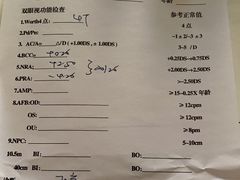 双眼视功能检查 参考正常值
1.Worth4点: 4T 4点
2.Pd/Po: -1±2/-3±3
3. AC/A: △/D (+1.00DS, ±1.00DS) 3-5 /D
4.BCC: +0.25DS~+0.75DS
5.NRA: +2.50 +2.00DS~+2.50DS
6.PRA: >-2.50DS
7.AMP: ≥15-0.25X 年龄
8.AFB:OD: ≥12cpm
OS: ≥12cpm
OU: ≥8pm
9.NPC: 5-10cm
10.5m BI: BO:
40cm BI: BO: